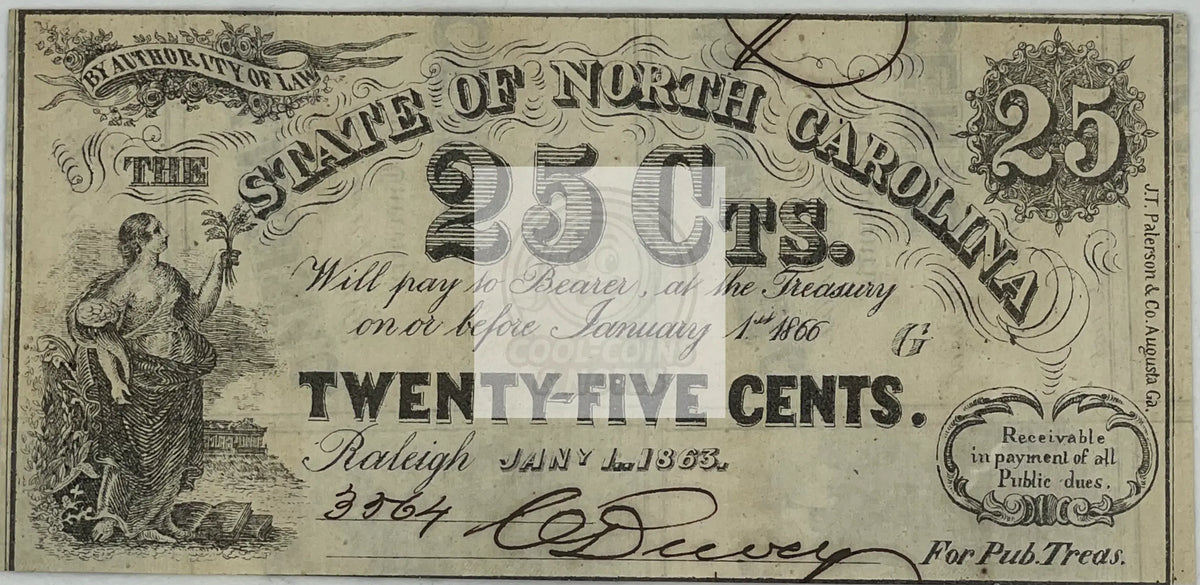 BY AUTHORITY OF LAW
THE
STATE OF NORTH CAROLINA
25
25 CTS.
Will pay to Bearer, at the Treasury
on or before January 1st 1866
G
COOL-COIN
TWENTY-FIVE CENTS.
Raleigh JANY 1.. 1863.
3564
For Pub. Treas.
Receivable
in payment of all
Public dues.
J.T. Paterson & Co. Augusta Ga